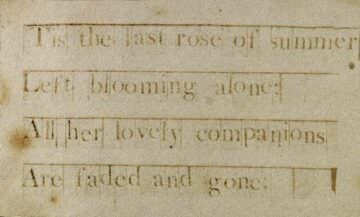 'Tis the last rose of summer
Left blooming alone;
All her lovely companions
Are faded and gone;